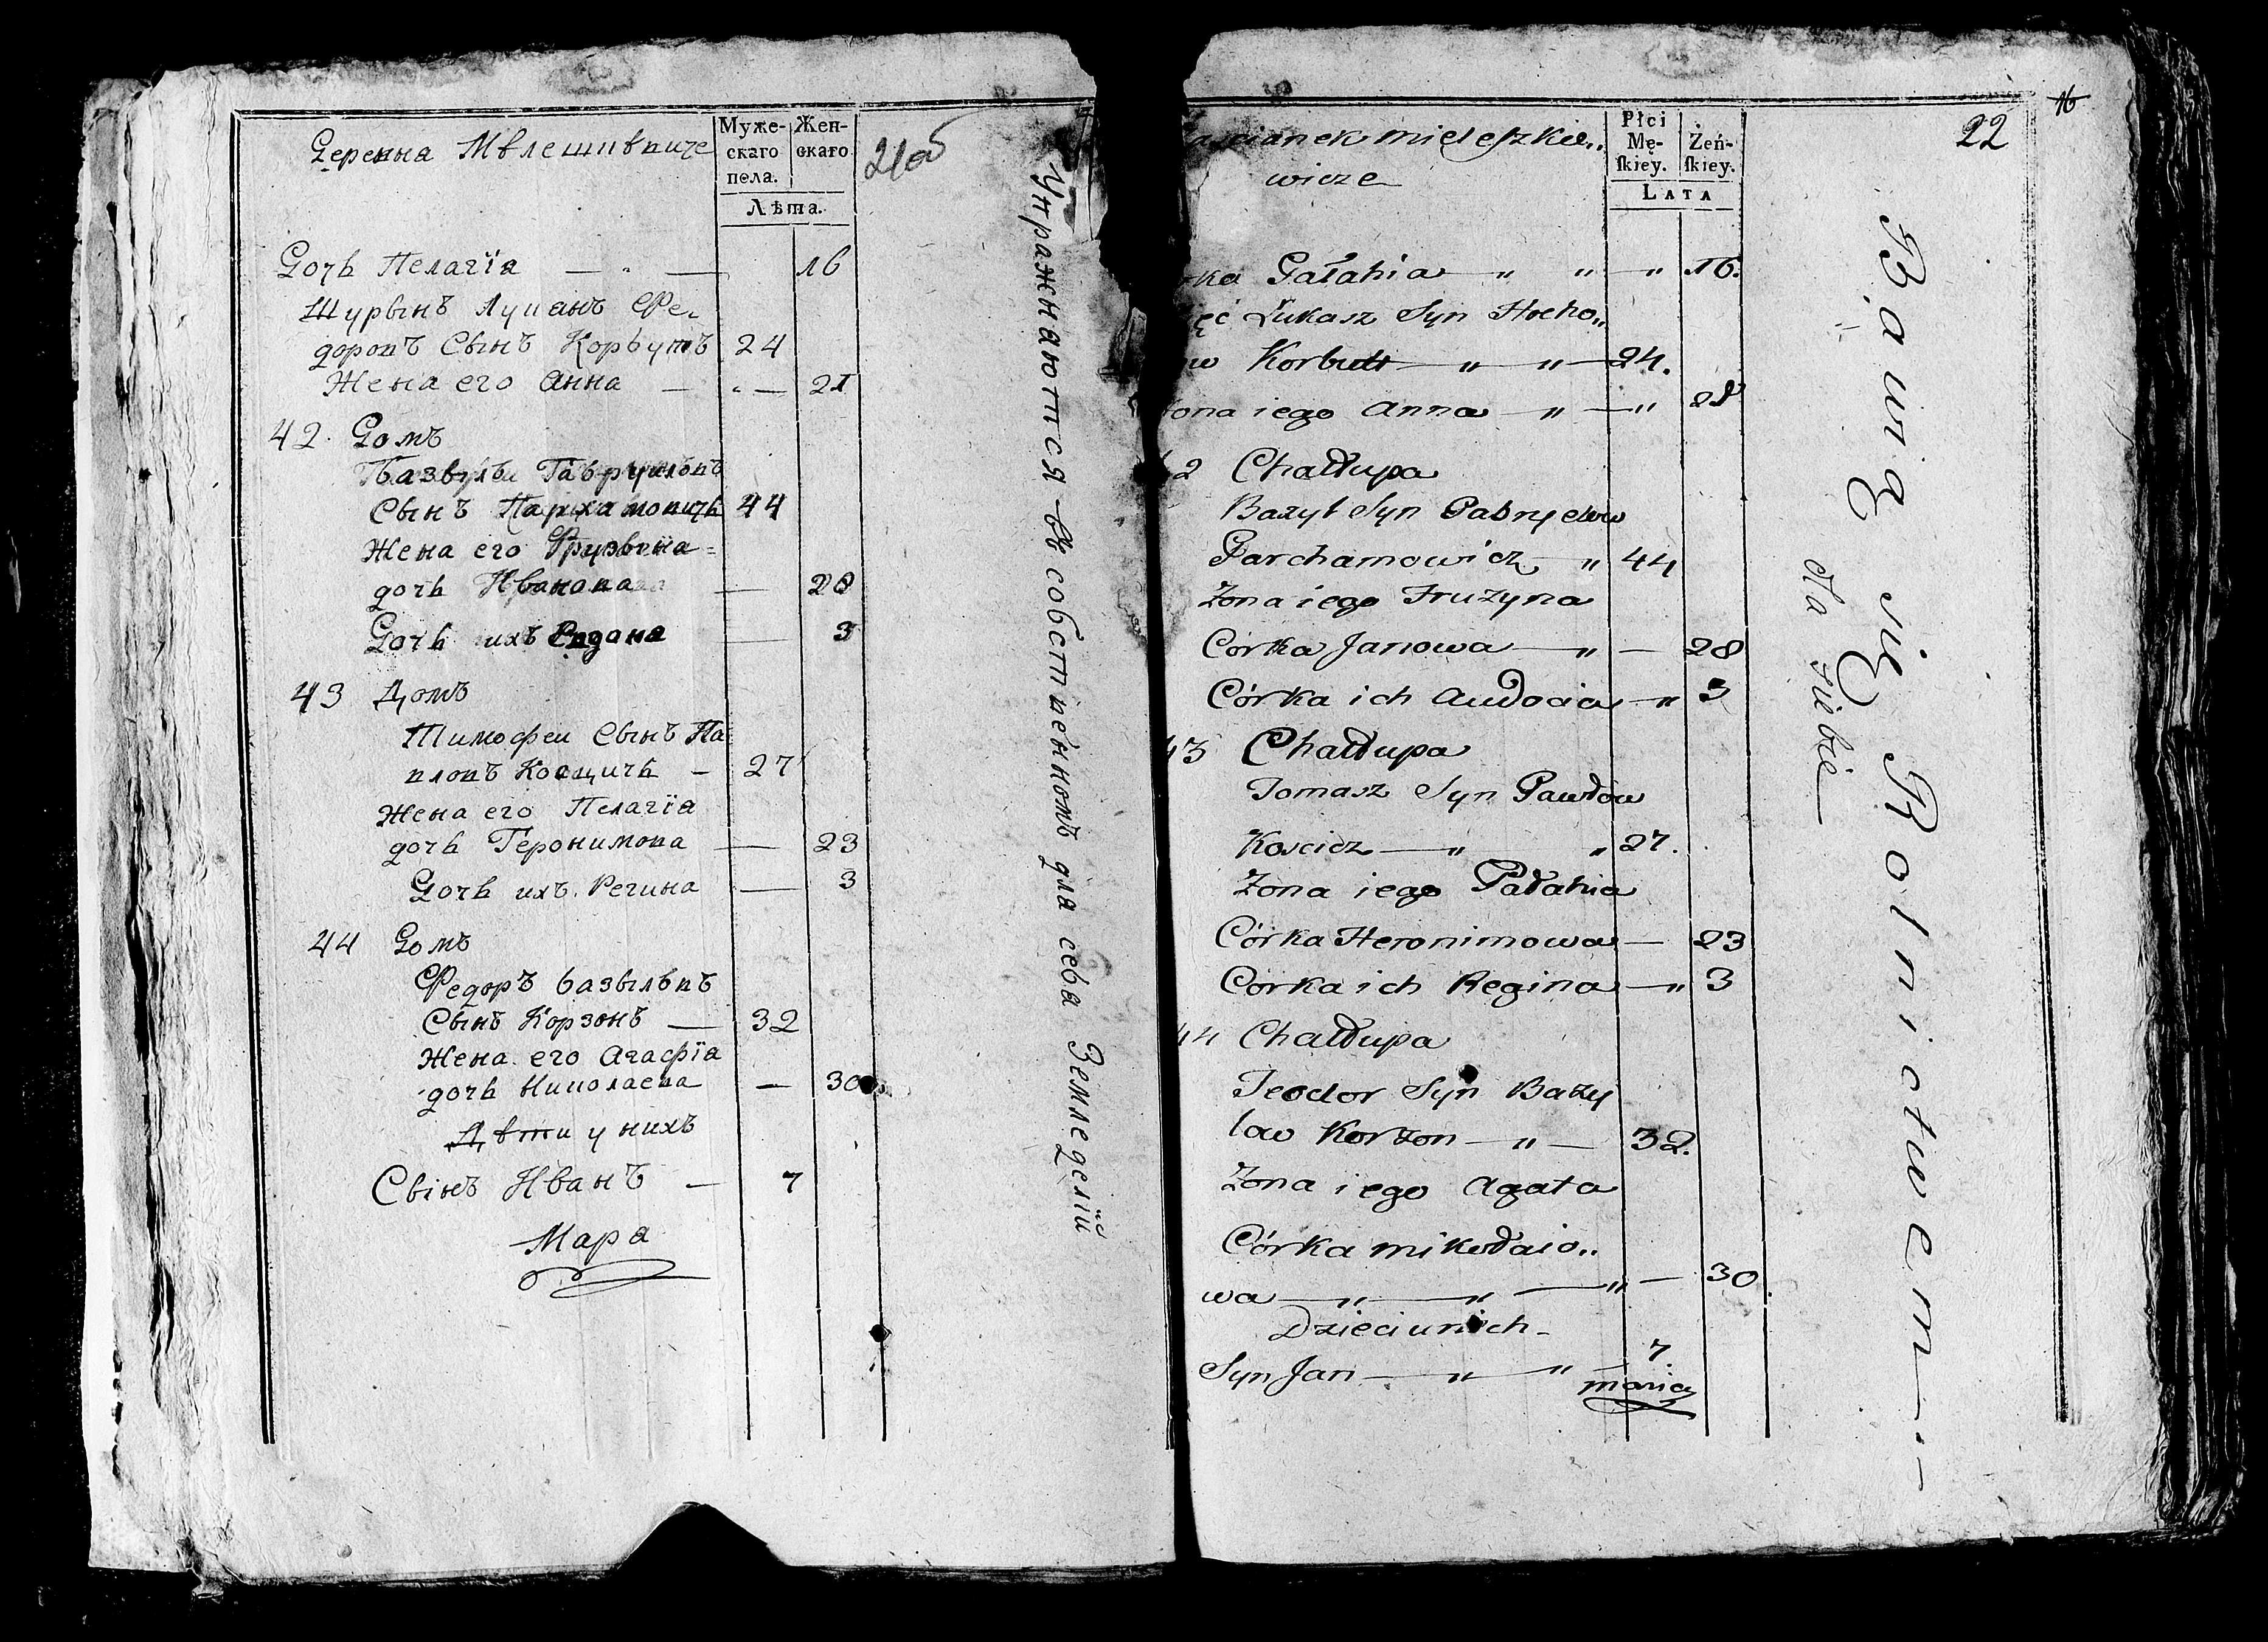 Деревна Мѣлешкѣвиче
Муже-
скаго
пола.
Жен-
скаго
Лѣта.
21об
Дочь Пелагїя — „ — 16
Шурынъ Лукашъ Фе-
доровъ Сынъ Корбутъ 24
Жена его Анна — „ — 21
42. Домъ
Базыль Гаврыловъ
Сынъ Пархамовичь 44
Жена его Фрузына
дочь Иванова — 28
Дочь ихъ — 3
43 Домъ
Тимофеи Сынъ Па
вловъ Косцичь — 27
Жена его Пелагїя
дочь Геронимова — 23
Дочь ихъ Регина — 3
44 Домъ
Федоръ базылѣвъ
Сынъ Корзонъ — 32
Жена его Агафїа
дочь Николаева — 30
Дѣти у нихъ
Сынъ Иванъ — 7
Мара
Упражнаются въ собственномъ для себа Земледелїи
22
16
mieleszkie„
wicze
Płci
Mę-
ſkiey.
Żeń-
ſkiey.
LATA
Pałahia „ „ — „ 16.
Łukasz Syn Hreho„
Korbutt — „ „ — 24.
iego Anna — „ — „
Chałłupa
Bazyl Syn Gabryelow
Parchamowicz „ 44
Zona iego Fruzyna
Córka Janowa — „ — 28
Córka ich Audocia — „ 3
43 Chałłupa
Tomasz Syn Pawłow
Koscicz — „ „ 27.
Zona iego Pałahia
Córka Heronimowa — 23
Córka ich Regina — „ 3
44 Chałłupa
Teodor Syn Bazy
low Korzon — „ — 32.
Zona iego Agata
Córka mikołaio„
wa — „ — „ — „ — 30
Dzieci u nich —
Syn Jan — „ — „ — 7.
maria
Bawią się Rolnictwem —
dla siebie —